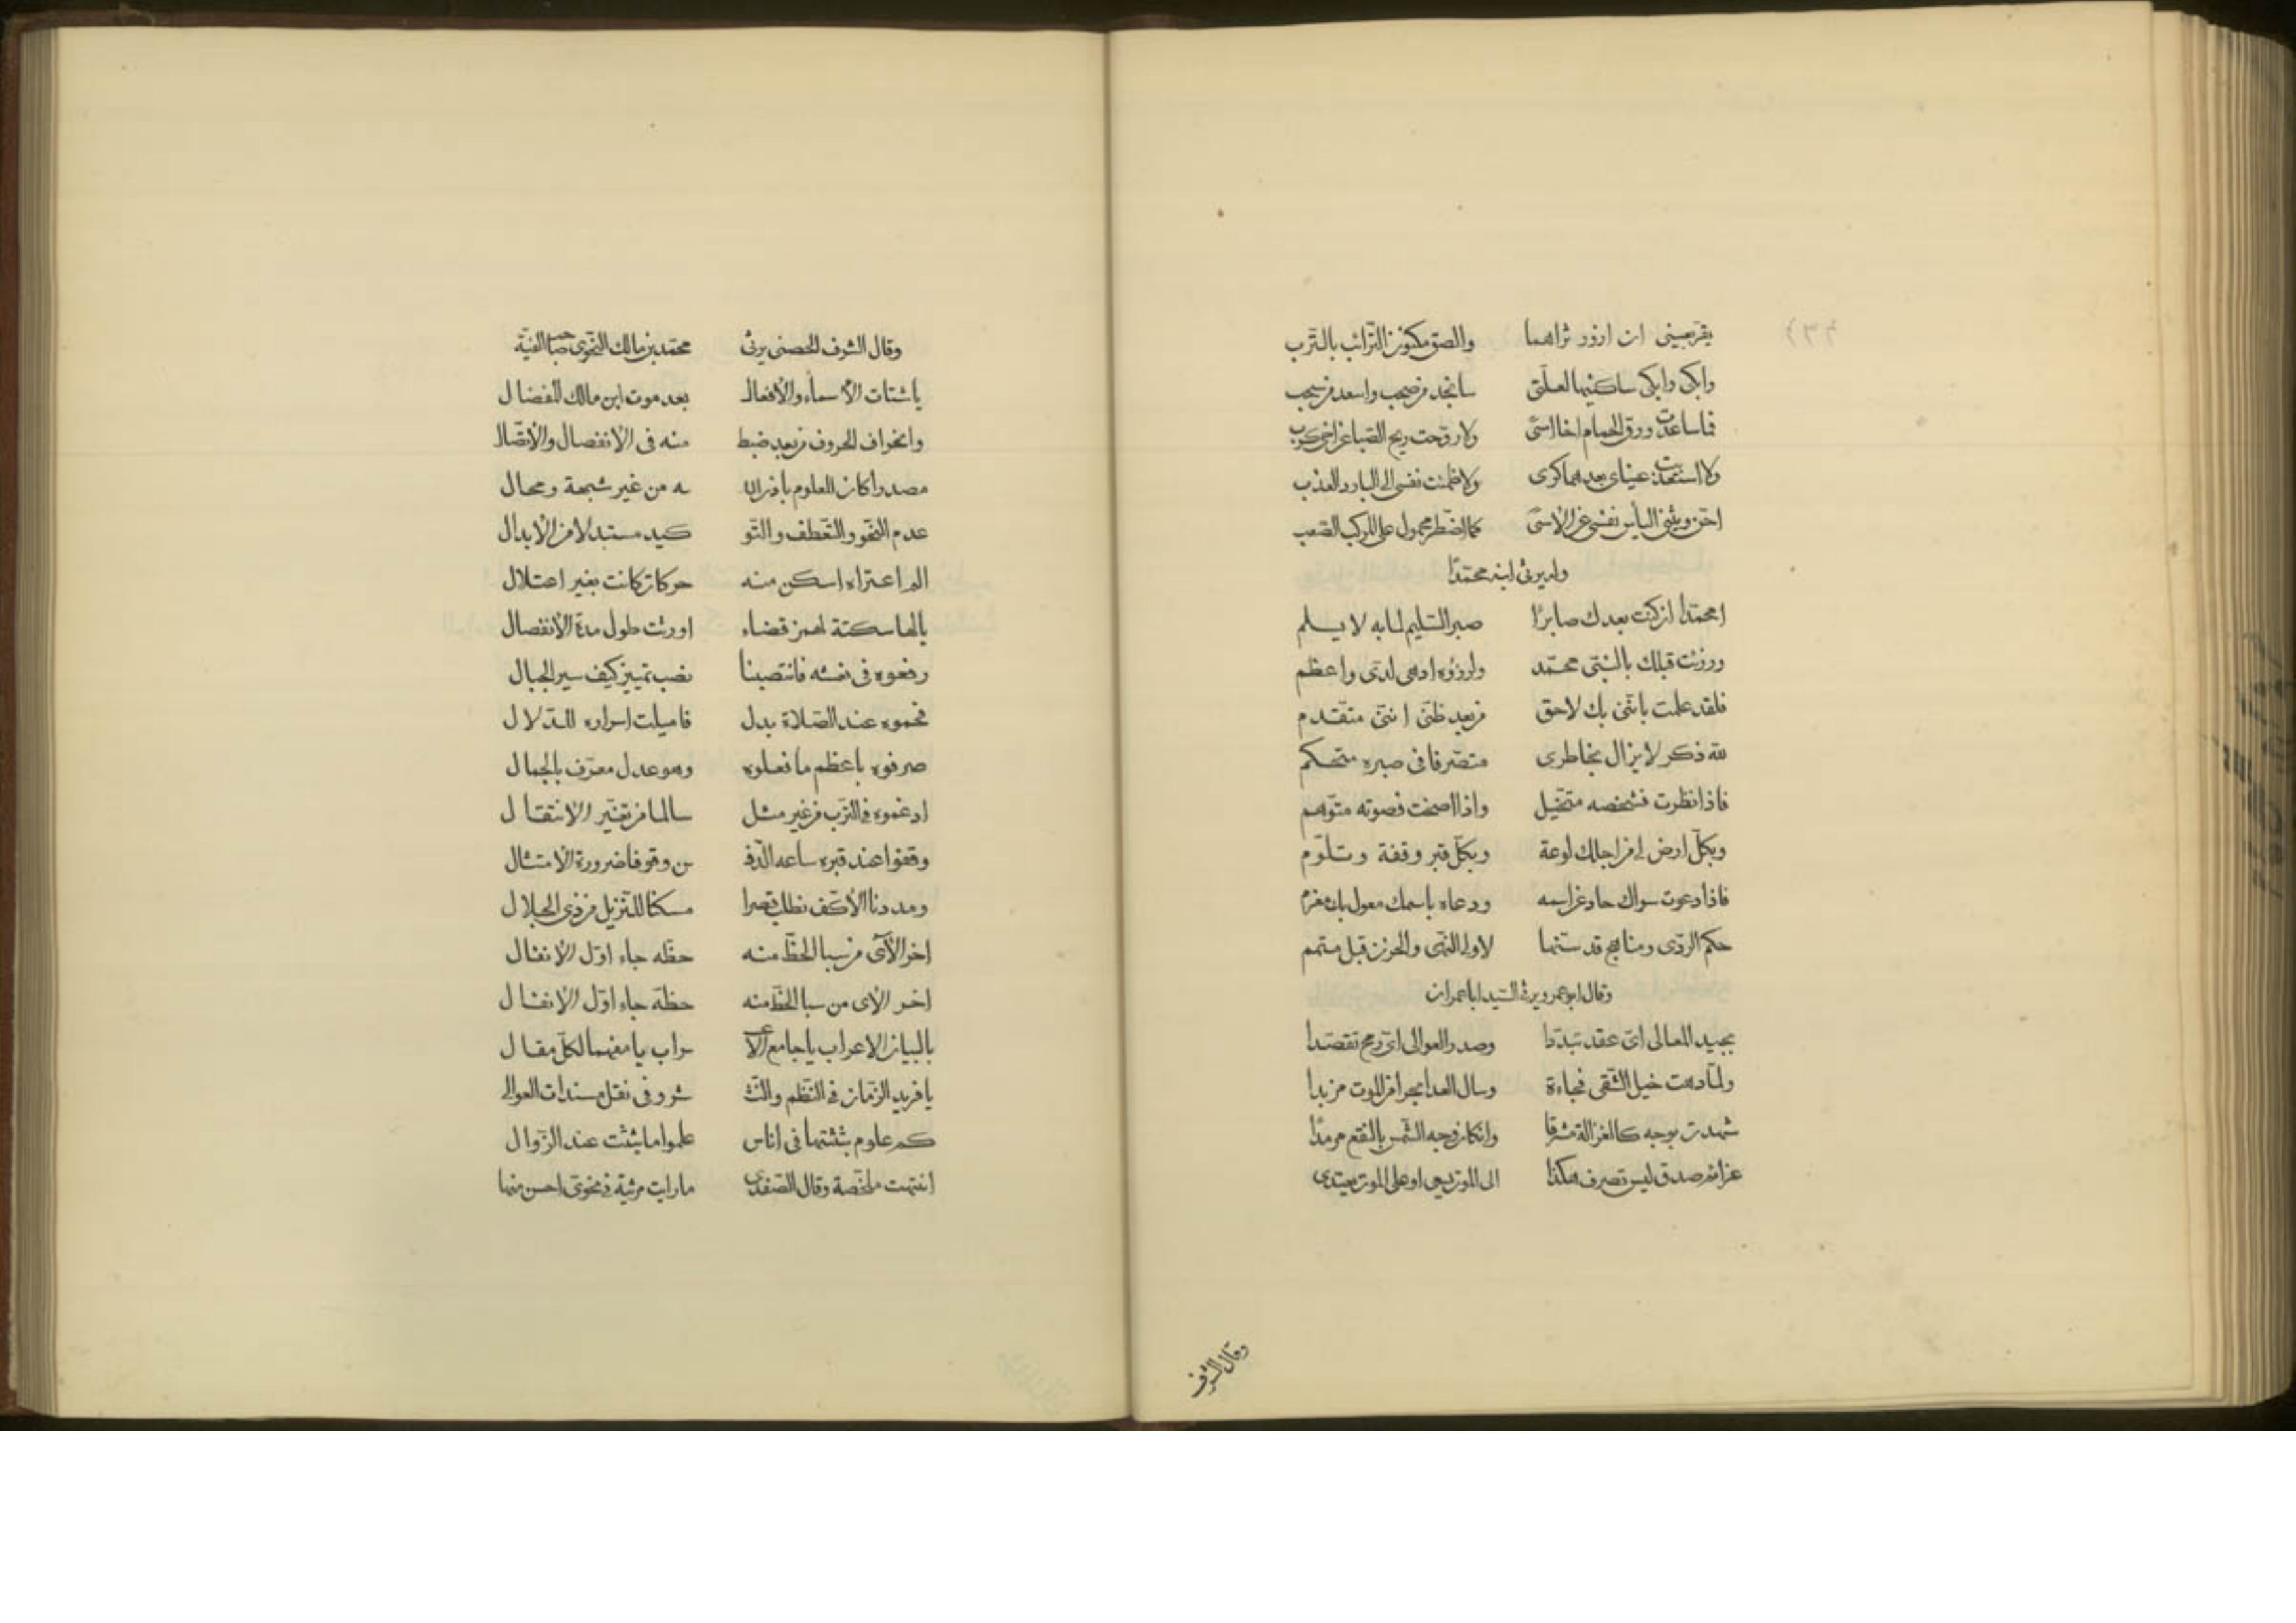 يقر بعينى ان ازور ثراهما والصق مكنون الترائب بالترب
وابكى وابكى ساكنيها لعلنى سانجد من صحب واسعد من سحب
فما ساعدت ورق الحمام اخا اسى ولا روحت ريح الصبا عن اخى كرب
ولا استعذبت عيناى بعدهما كرى ولا ظمئت نفسى الى البارد العذب
احن ويثنى الياس نفسى عن الاسى كما اضطر محمول على المركب الصعب
وله يرثى ابنه محمدا
امحمدا ان كنت بعدك صابرا صبر السليم لما به لا يسلم
ورزئت قبلك بالنبى محمد ولرزؤه ادهى لدى واعظم
فلقد علمت باننى بك لاحق من بعد ظنى اننى متقدم
لله ذكر لا يزال بخاطرى متصرفا فى صبره متحكم
فاذا نظرت فشخصه متخيل واذا اصخت فصوته متوهم
وبكل ارض لى من اجلك لوعة وبكل قبر وقفة وتلوم
فاذا دعوت سواك حاد عن اسمه ودعاه باسمك معول بك مغرم
حكم الردى ومناهج قد سنها لاولى النهى والحزن قبل متمم
وقال ابو عمر ويرثى السيد ابا عمران
بجيد المعالى اى عقد تبددا وصدر العوالى اى رمح تقصدا
ولما دهت خيل الشقى فجاءة وسال العدا بحرا من الموت مزبدا
شهدت بوجه كالغزالة مشرقا وان كان وجه الشمس بالنقع مرمدا
عزائم صدق ليس تصرف هكذا الى الموت يسعى او على الموت يعتدى
وقال الشرف
وقال الشرف الحصنى يرثى محمد بن مالك النحوى صاحب الفية
يا شتات الأسماء والأفعال بعد موت ابن مالك المفضال
وانحراف الحروف من بعد ضبط منه فى الأنفصال والأتصال
مصدرا كان للعلوم باذن الله من غير شبهة ومحال
عدم النحو والتعطف والتو كيد مستبدلا من الأبدال
الم اعتراه اسكن منه حركات كانت بغير اعتلال
يالها سكتة لهمز قضاء اورثت طول مدة الأنفصال
رفعوه فى نعشه فانتصبنا نصب تمييز كيف سير الجبال
فخموه عند الصلاة بدل فاميلت اسراره للدلال
صرفوه باعظم ما فعلوه وهو عدل معرف بالجمال
ادغموه فى الترب من غير مثل سالما من تغير الانتقال
وقفوا عند قبره ساعة الدف ن وقوفا ضرورة الامتثال
ومددنا الأكف نطلب قصرا مسكنا للنزيل من ذى الجلال
اخر الآى من سبا الحظ منه حظه جاء اول الانفال
اخر الآى من سبا الحظ منه حظه جاء اول الانفال
بالبيان الاعراب يا جامع الأعـ ـراب يا مفهما لكل مقال
يا فريد الزمان فى النظم والنثـ ـثر وفى نقل مسندات العوالى
كم علوم بثثتها فى اناس علموا ما بثثت عند الزوال
انتهت ملخصة وقال الصفدى ما رايت مرثية فى نحوى احسن منها